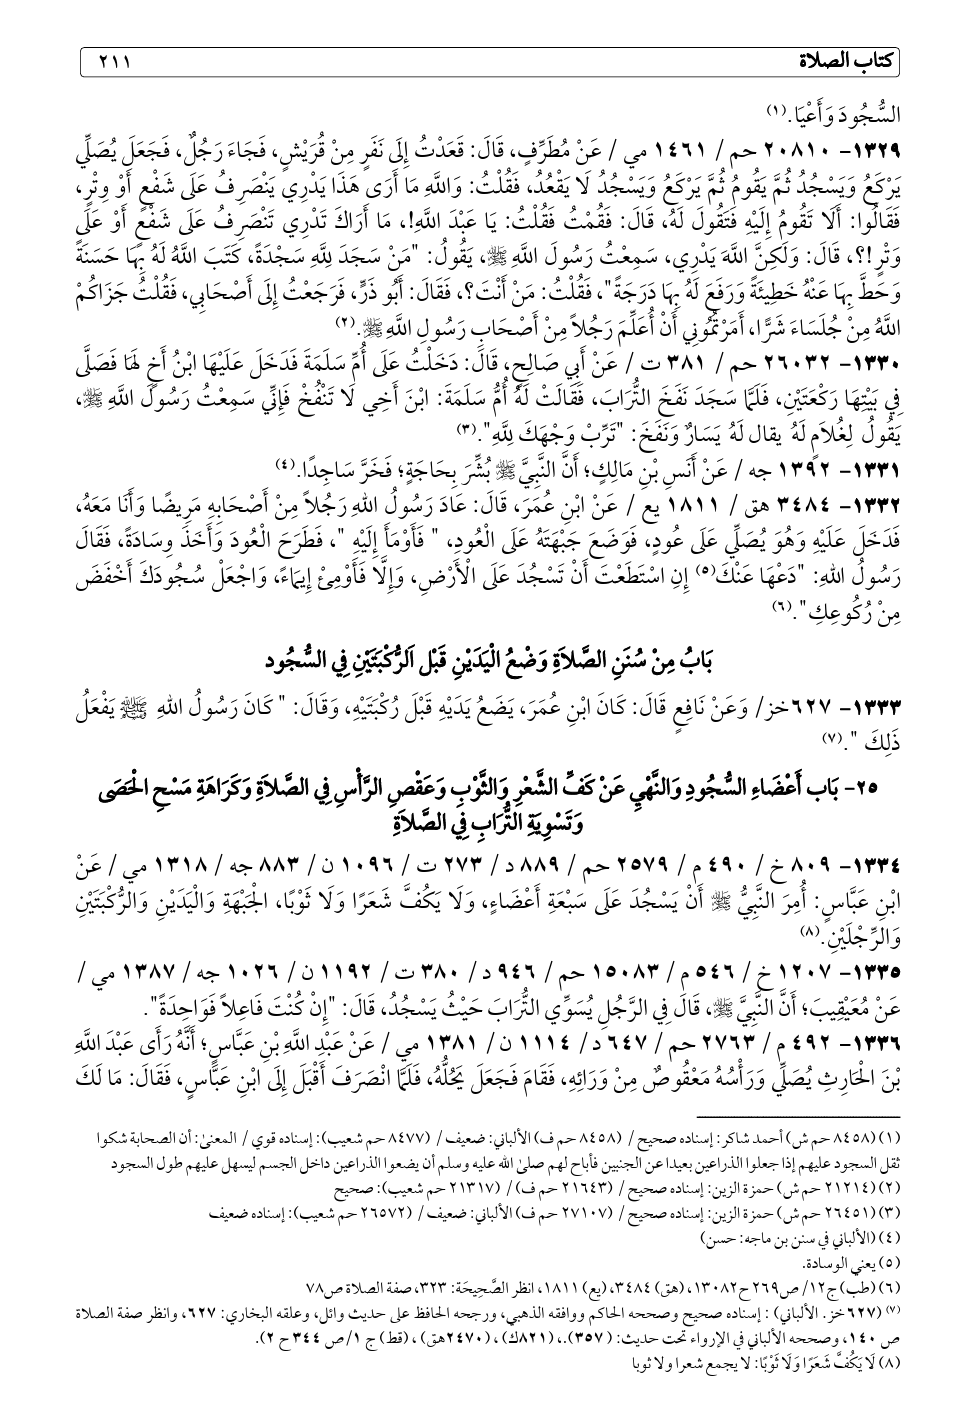 كتاب الصلاة ٢١١
السُّجُودَ وَأَعْيَا.(١)
١٣٢٩- ٢٠٨١٠ حم / ١٤٦١ مي / عَنْ مُطَرِّفٍ، قَالَ: قَعَدْتُ إِلَى نَفَرٍ مِنْ قُرَيْشٍ، فَجَاءَ رَجُلٌ، فَجَعَلَ يُصَلِّي
يَرْكَعُ وَيَسْجُدُ ثُمَّ يَقُومُ ثُمَّ يَرْكَعُ وَيَسْجُدُ لَا يَقْعُدُ، فَقُلْتُ: وَاللَّهِ مَا أَرَى هَذَا يَدْرِي يَنْصَرِفُ عَلَى شَفْعٍ أَوْ وِتْرٍ،
فَقَالُوا: أَلَا تَقُومُ إِلَيْهِ فَتَقُولَ لَهُ، قَالَ: فَقُمْتُ فَقُلْتُ: يَا عَبْدَ اللَّهِ!، مَا أَرَاكَ تَدْرِي تَنْصَرِفُ عَلَى شَفْعٍ أَوْ عَلَى
وَتْرٍ !؟، قَالَ: وَلَكِنَّ اللَّهَ يَدْرِي، سَمِعْتُ رَسُولَ اللَّهِ ﷺ، يَقُولُ: "مَنْ سَجَدَ لِلَّهِ سَجْدَةً، كَتَبَ اللَّهُ لَهُ بِهَا حَسَنَةً
وَحَطَّ بِهَا عَنْهُ خَطِيئَةً وَرَفَعَ لَهُ بِهَا دَرَجَةً"، فَقُلْتُ: مَنْ أَنْتَ؟، فَقَالَ: أَبُو ذَرٍّ، فَرَجَعْتُ إِلَى أَصْحَابِي، فَقُلْتُ جَزَاكُمْ
اللَّهُ مِنْ جُلَسَاءَ شَرًّا، أَمَرْتُمُونِي أَنْ أُعَلِّمَ رَجُلاً مِنْ أَصْحَابِ رَسُولِ اللَّهِ ﷺ.(٢)
١٣٣٠- ٢٦٠٣٢ حم / ٣٨١ ت / عَنْ أَبِي صَالِحٍ، قَالَ: دَخَلْتُ عَلَى أُمِّ سَلَمَةَ فَدَخَلَ عَلَيْهَا ابْنُ أَخٍ لَهَا فَصَلَّى
فِي بَيْتِهَا رَكْعَتَيْنِ، فَلَمَّا سَجَدَ نَفَخَ التُّرَابَ، فَقَالَتْ لَهُ أُمُّ سَلَمَةَ: ابْنَ أَخِي لَا تَنْفُخْ فَإِنِّي سَمِعْتُ رَسُولَ اللَّهِ ﷺ،
يَقُولُ لِغُلَامٍ لَهُ يقال لَهُ يَسَارٌ وَنَفَخَ: "تَرِّبْ وَجْهَكَ لِلَّهِ".(٣)
١٣٣١- ١٣٩٢ جه / عَنْ أَنَسِ بْنِ مَالِكٍ؛ أَنَّ النَّبِيَّ ﷺ بُشِّرَ بِحَاجَةٍ؛ فَخَرَّ سَاجِدًا.(٤)
١٣٣٢- ٣٤٨٤ هق / ١٨١١ يع / عَنْ ابْنِ عُمَرَ، قَالَ: عَادَ رَسُولُ اللهِ رَجُلاً مِنْ أَصْحَابِهِ مَرِيضًا وَأَنَا مَعَهُ،
فَدَخَلَ عَلَيْهِ وَهُوَ يُصَلِّي عَلَى عُودٍ، فَوَضَعَ جَبْهَتَهُ عَلَى الْعُودِ، " فَأَوْمَأَ إِلَيْهِ "، فَطَرَحَ الْعُودَ وَأَخَذَ وِسَادَةً، فَقَالَ
رَسُولُ اللهِ: "دَعْهَا عَنْكَ(٥) إِنِ اسْتَطَعْتَ أَنْ تَسْجُدَ عَلَى الْأَرْضِ، وَإِلَّا فَأَوْمِئْ إِيمَاءً، وَاجْعَلْ سُجُودَكَ أَخْفَضَ
مِنْ رُكُوعِكِ".(٦)
بَابُ مِنْ سُنَنِ الصَّلاَةِ وَضْعُ الْيَدَيْنِ قَبْلَ اَلرُّكْبَتَيْنِ فِي السُّجُود
١٣٣٣- ٦٢٧خز/ وَعَنْ نَافِعٍ قَالَ: كَانَ ابْنِ عُمَرَ، يَضَعُ يَدَيْهِ قَبْلَ رُكْبَتَيْهِ، وَقَالَ: " كَانَ رَسُولُ اللهِ ﷺ يَفْعَلُ
ذَلِكَ ".(٧)
٢٥- بَاب أَعْضَاءِ السُّجُودِ وَالنَّهْيِ عَنْ كَفِّ الشَّعْرِ وَالثَّوْبِ وَعَقْصِ الرَّأْسِ فِي الصَّلاَةِ وَكَرَاهَةِ مَسْحِ الْحَصَى
وَتَسْوِيَةِ التُّرَابِ فِي الصَّلاَةِ
١٣٣٤- ٨٠٩ خ / ٤٩٠ م / ٢٥٧٩ حم / ٨٨٩ د / ٢٧٣ ت / ١٠٩٦ ن / ٨٨٣ جه / ١٣١٨ مي / عَنْ
ابْنِ عَبَّاسٍ: أُمِرَ النَّبِيُّ ﷺ أَنْ يَسْجُدَ عَلَى سَبْعَةِ أَعْضَاءٍ، وَلَا يَكُفَّ شَعَرًا وَلَا ثَوْبًا، الْجَبْهَةِ وَالْيَدَيْنِ وَالرُّكْبَتَيْنِ
وَالرِّجْلَيْنِ.(٨)
١٣٣٥- ١٢٠٧ خ / ٥٤٦ م / ١٥٠٨٣ حم / ٩٤٦ د/ ٣٨٠ ت/ ١١٩٢ ن/ ١٠٢٦ جه / ١٣٨٧ مي /
عَنْ مُعَيْقِيبَ؛ أَنَّ النَّبِيَّ ﷺ، قَالَ فِي الرَّجُلِ يُسَوِّي التُّرَابَ حَيْثُ يَسْجُدُ، قَالَ: "إِنْ كُنْتَ فَاعِلاً فَوَاحِدَةً".
١٣٣٦- ٤٩٢ م/ ٢٧٦٣ حم/ ٦٤٧ د/ ١١١٤ ن/ ١٣٨١ مي / عَنْ عَبْدِ اللَّهِ بْنِ عَبَّاسٍ؛ أَنَّهُ رَأَى عَبْدَ اللَّهِ
بْنَ الْحَارِثِ يُصَلِّي وَرَأْسُهُ مَعْقُوصٌ مِنْ وَرَائِهِ، فَقَامَ فَجَعَلَ يَحُلُّهُ، فَلَمَّا انْصَرَفَ أَقْبَلَ إِلَى ابْنِ عَبَّاسٍ، فَقَالَ: مَا لَكَ
(١) (٨٤٥٨ حم ش) أحمد شاكر: إسناده صحيح / (٨٤٥٨ حم ف) الألباني: ضعيف / (٨٤٧٧ حم شعيب): إسناده قوي / المعنى: أن الصحابة شكوا
ثقل السجود عليهم إذا جعلوا الذراعين بعيدا عن الجنبين فأباح لهم صلى الله عليه وسلم أن يضعوا الذراعين داخل الجسم ليسهل عليهم طول السجود
(٢) (٢١٢١٤ حم ش) حمزة الزين: إسناده صحيح / (٢١٦٤٣ حم ف) / (٢١٣١٧ حم شعيب): صحيح
(٣) (٢٦٤٥١ حم ش) حمزة الزين: إسناده صحيح / (٢٧١٠٧ حم ف) الألباني: ضعيف / (٢٦٥٧٢ حم شعيب): إسناده ضعيف
(٤) (الألباني في سنن بن ماجه: حسن)
(٥) يعني الوسادة.
(٦) (طب) ج١٢/ ص٢٦٩ ح١٣٠٨٢، (هق) ٣٤٨٤، (يع) ١٨١١، انظر الصَّحِيحَة: ٣٢٣، صفة الصلاة ص٧٨
(٧) (٦٢٧خز. الألباني) : إسناده صحيح وصححه الحاكم ووافقه الذهبي، ورجحه الحافظ على حديث وائل، وعلقه البخاري: ٦٢٧، وانظر صفة الصلاة
ص ١٤٠، وصححه الألباني في الإرواء تحت حديث: (٣٥٧).، (٨٢١ك) ، (٢٤٧٠هق) ، (قط) ج ١/ ص ٣٤٤ ح ٢).
(٨) لَا يَكُفَّ شَعَرًا وَلَا ثَوْبًا: لا يجمع شعرا ولا ثوبا